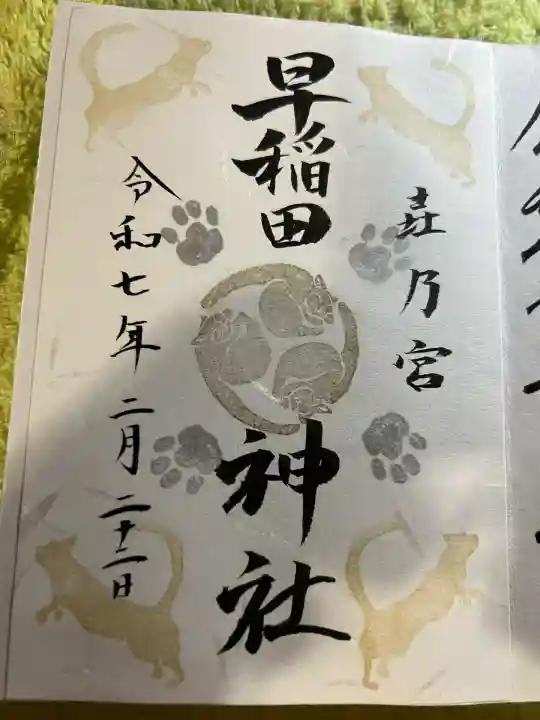 壵乃宮
早稲田神社
令和七年二月二十二日